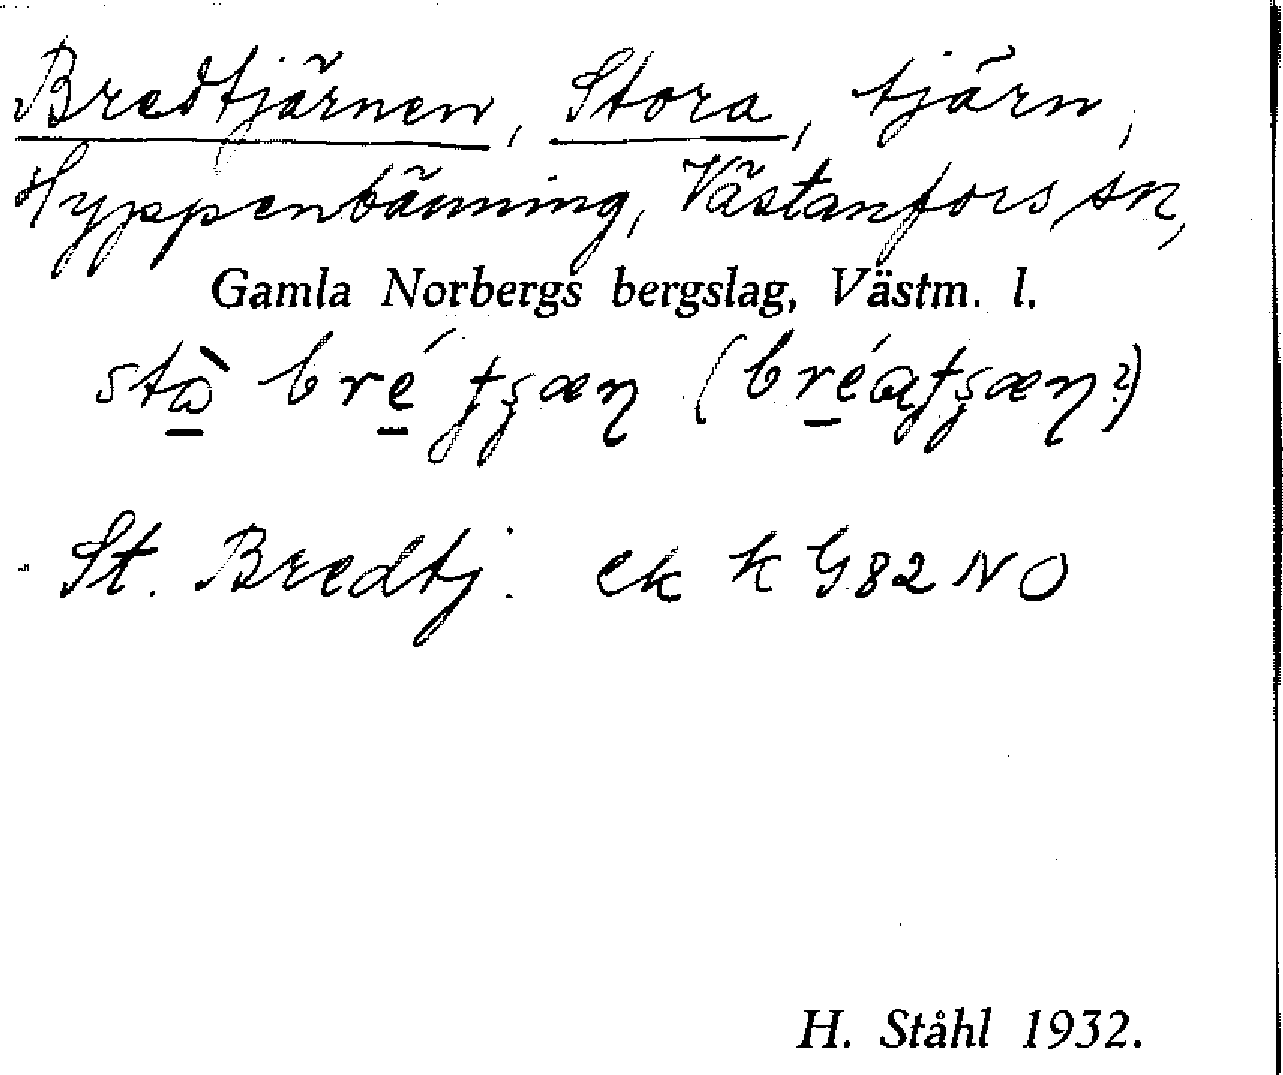 Bredtjärnen, Stora, tjärn,
Hyppenbänning, Västanfors sn,
Gamla Norbergs bergslag, Västm. l.
St. Bredtj. ek k G82 NO
H. Ståhl 1932.